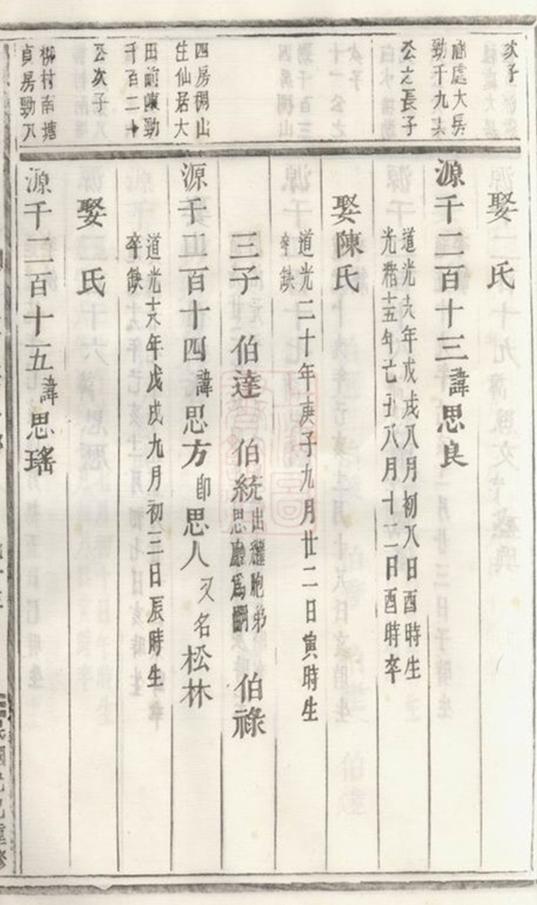 次子
處大吳
勁千九
公之長子
四房棡山
生仙居大
田前陳勁
千百二十
公次子
柳村南塘
貞房勁八
娶 氏
源千二百十三諱思良
道光十八年戊戌八月初八日酉時生
光緒十五年己丑八月十二日酉時卒
娶陳氏
道光二十年庚子九月廿二日寅時生
卒缺
三子 伯達 伯統出繼胞弟思聰為嗣 伯祿
源千二百十四諱思方即思人又名松林
道光十八年戊戌九月初三日辰時生
卒缺
娶 氏
源千二百十五諱思瑤